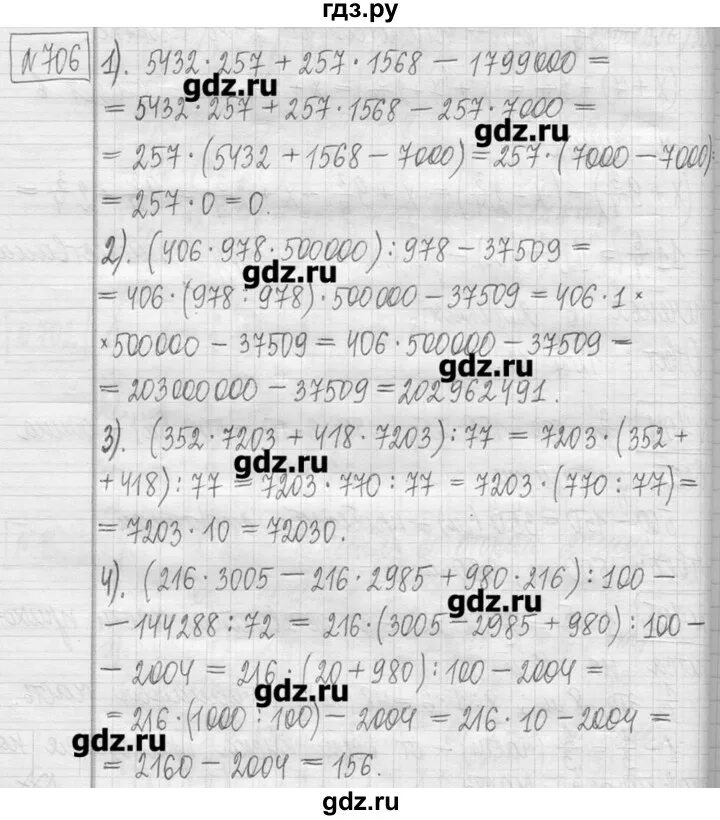 гдз.ру
№706 1). 5432·257 + 257·1568 – 1799000 =
gdz.ru
= 5432·257 + 257·1568 – 257·7000 =
gdz.ru
= 257·(5432 + 1568 – 7000) = 257·(7000 – 7000)=
= 257·0 = 0.
2). (406·978·500000):978 – 37509 =
gdz.ru
= 406·(978:978)·500000 – 37509 = 406·1×
×500000 – 37509 = 406·500000 – 37509 =
gdz.ru
= 203000000 – 37509 = 202962491.
3). (352·7203 + 418·7203):77 = 7203·(352 +
gdz.ru
+ 418):77 = 7203·770:77 = 7203·(770:77) =
= 7203·10 = 72030.
4). (216·3005 – 216·2985 + 980·216):100 –
gdz.ru
– 144288:72 = 216·(3005 – 2985 + 980):100 –
– 2004 = 216·(20 + 980):100 – 2004 =
gdz.ru
= 216·(1000:100) – 2004 = 216·10 – 2004 =
gdz.ru
= 2160 – 2004 = 156.
gdz.ru